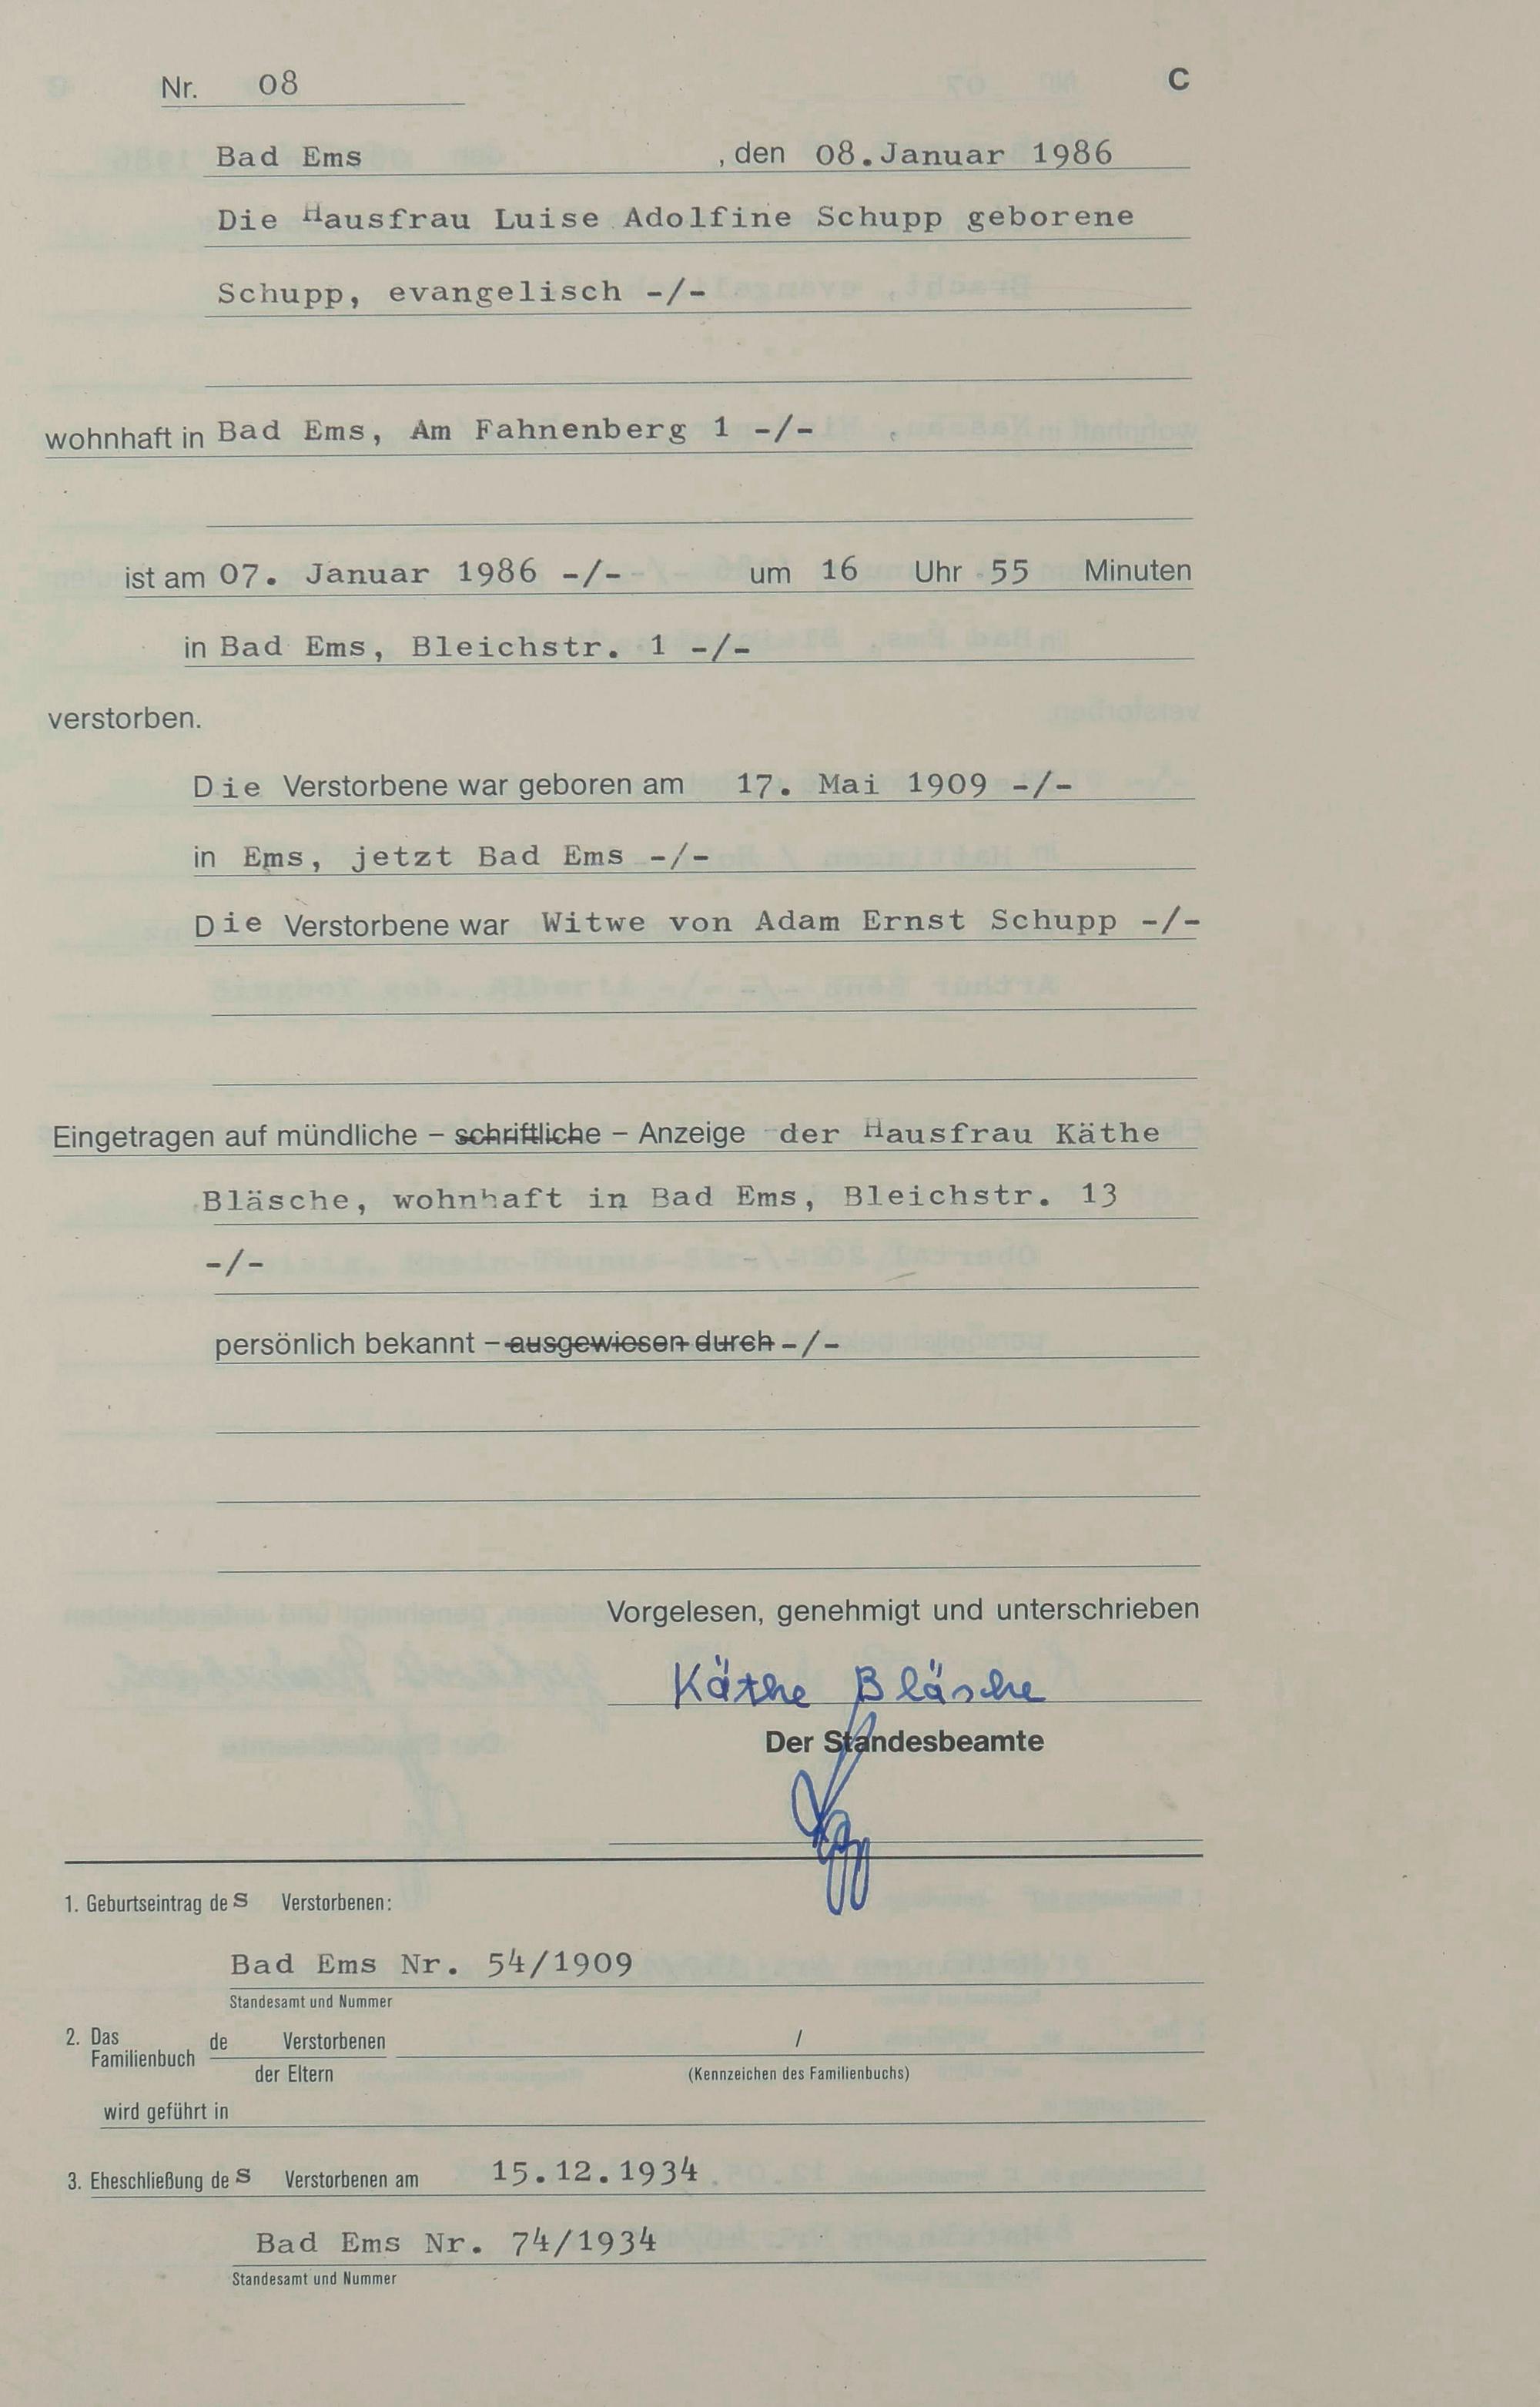 Nr. 08 C
Bad Ems , den 08.Januar 1986
Die Hausfrau Luise Adolfine Schupp geborene
Schupp, evangelisch -/-
wohnhaft in Bad Ems, Am Fahnenberg 1 -/-
ist am 07. Januar 1986 -/- um 16 Uhr 55 Minuten
in Bad Ems, Bleichstr. 1 -/-
verstorben.
Die Verstorbene war geboren am 17. Mai 1909 -/-
in Ems, jetzt Bad Ems -/-
Die Verstorbene war Witwe von Adam Ernst Schupp -/-
Eingetragen auf mündliche – schriftliche – Anzeige der Hausfrau Käthe
Bläsche, wohnhaft in Bad Ems, Bleichstr. 13
-/-
persönlich bekannt – ausgewiesen durch -/-
Vorgelesen, genehmigt und unterschrieben
Käthe Bläsche
Der Standesbeamte
1. Geburtseintrag des Verstorbenen:
Bad Ems Nr. 54/1909
Standesamt und Nummer
2. Das Familienbuch de Verstorbenen /
der Eltern (Kennzeichen des Familienbuchs)
wird geführt in
3. Eheschließung des Verstorbenen am 15.12.1934
Bad Ems Nr. 74/1934
Standesamt und Nummer